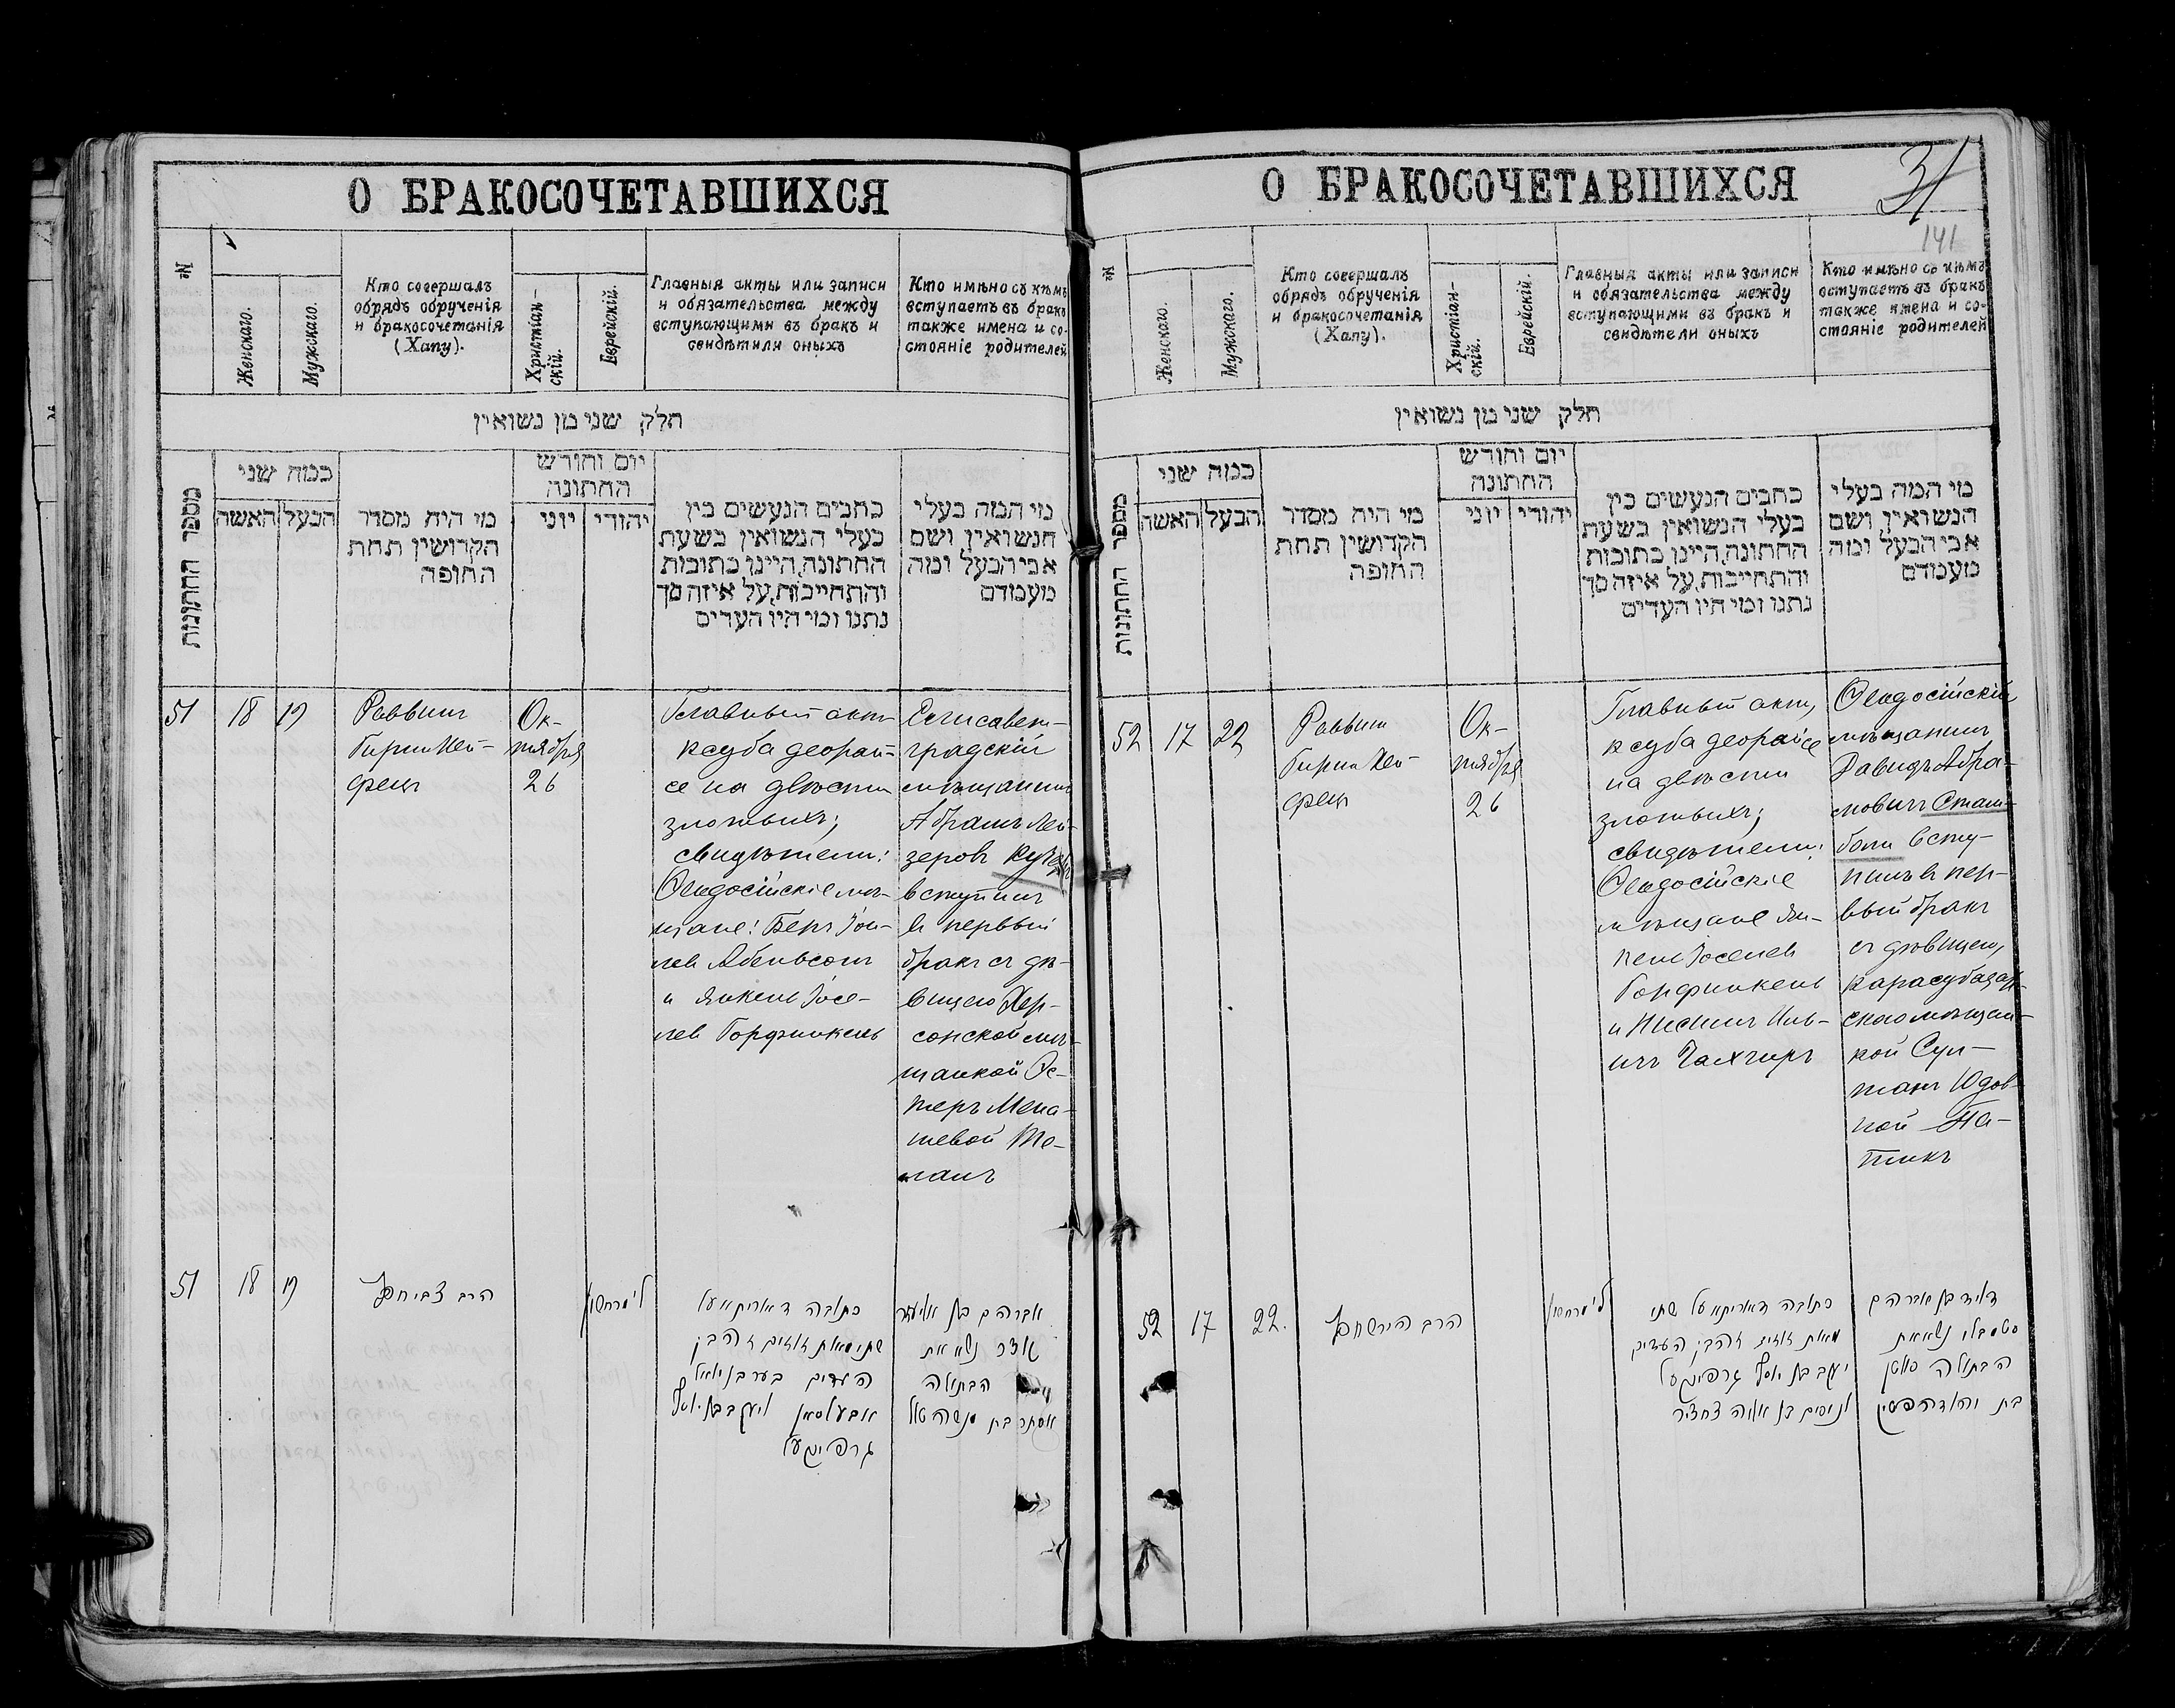 О БРАКОСОЧЕТАВШИХСЯ
№
Женскаго.
Мужскаго.
Кто совершалъ
обрядъ обрученія
и бракосочетанія
(Хапу).
Христіан-
скій.
Еврейскій.
Главныя акты или записи
и обязательства между
вступающими въ бракъ и
свидѣтили оныхъ
Кто имѣно съ кѣмъ
вступаетъ въ бракъ
также имена и со-
стояніе родителей
חלק שני מן נשואין
מספר החתונות
כמה שני
האשה
הבעל
מי היה מסדר
הקדושין תחת
החופה
יום וחודש
החתונה
יוני
יהודי
כתבים הנעשים בין
בעלי הנשואין בשעת
החתונה, היינו כתובות
והתחייבות, על איזה סך
נתנו ומי היו העדים
מי המה בעלי
הנשואין ושם
אבי הבעל ומה
מעמדם
51
18
19
Раввинъ
Гирш Хей-
фецъ
Ок-
тября
26
Главный актъ
ксуба деорай-
се на двѣсти
злотыхъ;
свидѣтели:
Ѳеодосійскіе мѣ-
щане:
и Янкель Іосе-
лев Горфинкель
Елисавет-
градскій
мѣщанинъ
Абрамъ Лей-
зеровъ
вступилъ
въ первый
бракъ съ дѣ-
вицею Хер-
сонской мѣ-
щанкой Эс-
теръ Мена-
шевой
51
18
19
הרב צבי חפץ
ל' מרחשון
כתובה דאורייתא על
שתי מאות זוזים זהב
העדים
יעקב בן יוסף
גרפינקעל
אברהם בן אליעזר
נשא את
הבתולה
אסתר בת מנשה
О БРАКОСОЧЕТАВШИХСЯ
31
141
№
Женскаго.
Мужскаго.
Кто совершалъ
обрядъ обрученія
и бракосочетанія
(Хапу).
Христіан-
скій.
Еврейскій.
Главныя акты или записи
и обязательства между
вступающими въ бракъ и
свидѣтели оныхъ
Кто имѣно съ кѣмъ
вступаетъ въ бракъ
также имена и со-
стояніе родителей
חלק שני מן נשואין
מספר החתונות
כמה שני
האשה
הבעל
מי היה מסדר
הקדושין תחת
החופה
יום וחודש
החתונה
יוני
יהודי
כתבים הנעשים בין
בעלי הנשואין בשעת
החתונה, היינו כתובות
והתחייבות, על איזה סך
נתנו ומי היו העדים
מי המה בעלי
הנשואין ושם
אבי הבעל ומה
מעמדם
52
17
22
Раввинъ
Гирш Хей-
фецъ
Ок-
тября
26
Главный актъ,
ксуба деорайсе
на двѣсти
злотыхъ;
свидѣтели:
Ѳеодосійскіе
мѣщане Ян-
кель Іоселев
Горфинкель
и Нисимъ
Ѳеодосійскій
мѣщанинъ
Давидъ Абра-
мовичъ Стам-
боли всту-
пилъ въ пер-
вый бракъ
съ дѣвицею,
карасубазар-
скою мѣщан-
кой Сул-
танъ Юдов-
ной
52
17
22.
הרב הירש חפץ
ל' מרחשון
כתובה דאורייתא על שתי
מאות זוזים זהב העדים
יעקב בן יוסף גרפינקעל
דויד בן אברהם
סטמבולי נשא את
הבתולה
בת יהודה